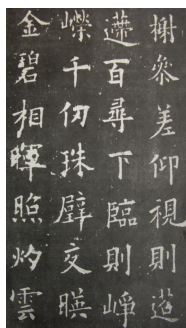 榭叅差仰視則迢
遰百尋下臨則崢
嶸千仞珠璧交暎
金碧相暉照灼雲